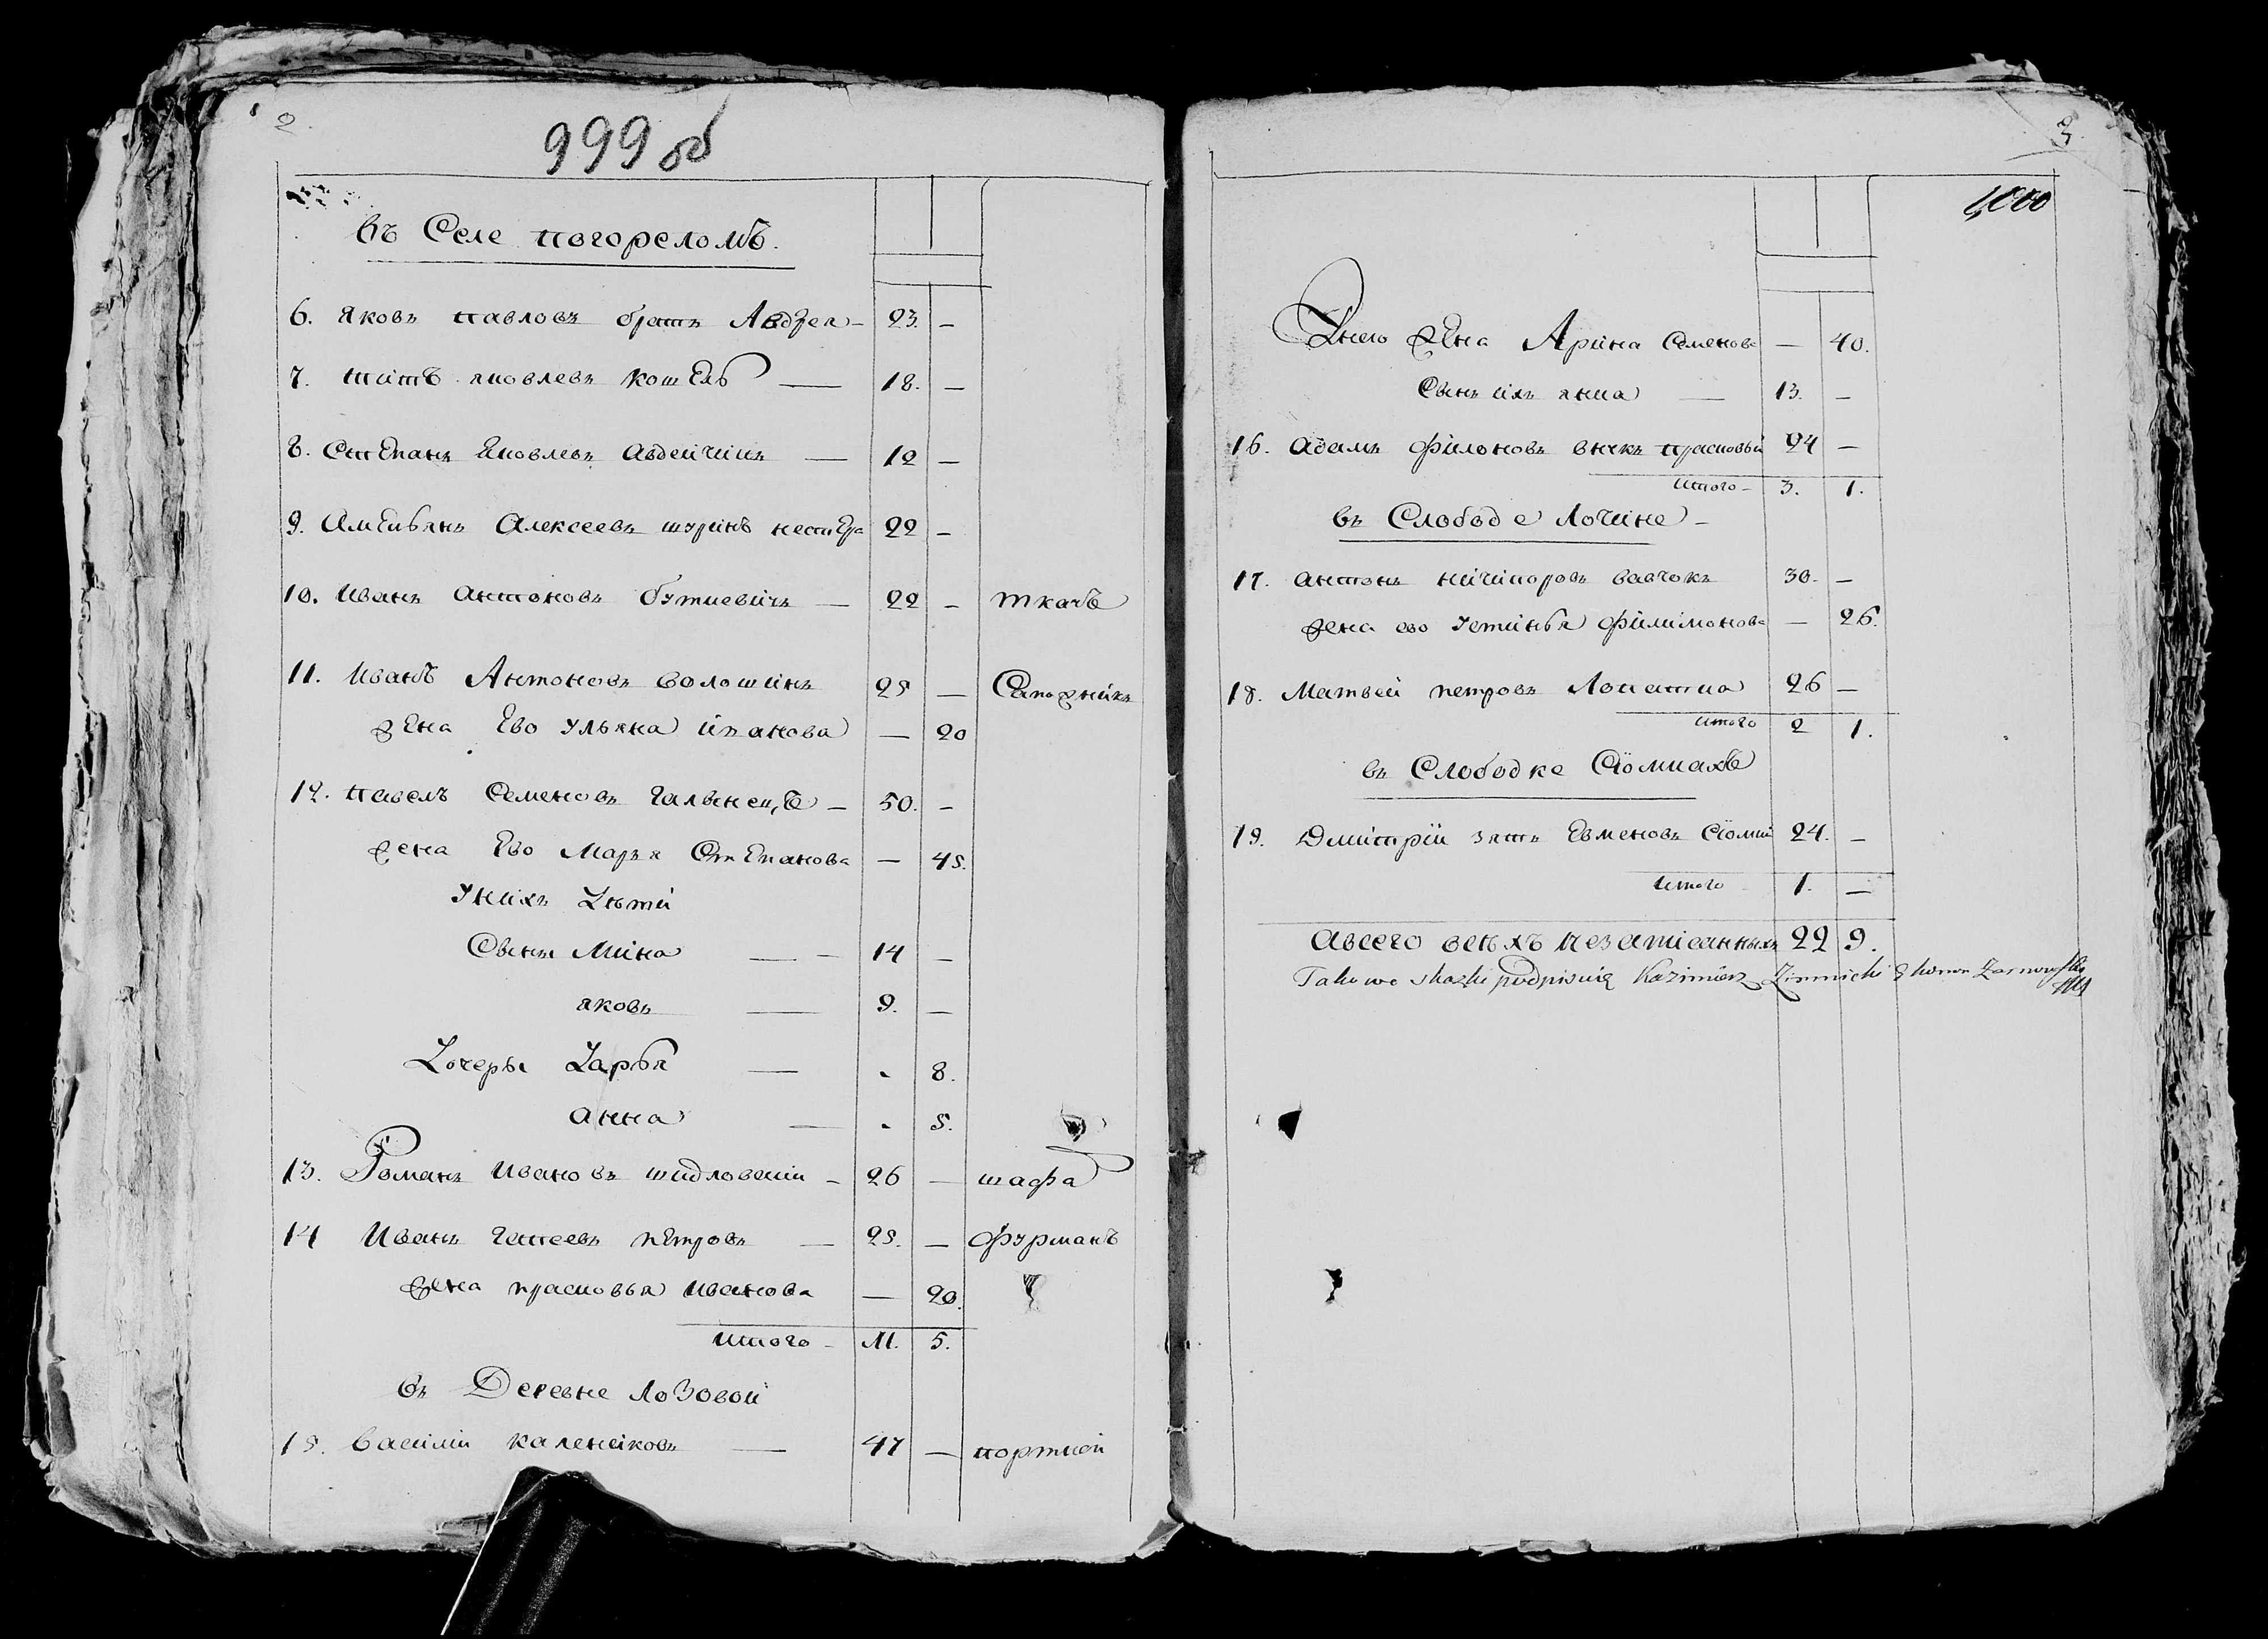 2.
999 об
въ Селе погореломъ.
6. яковъ павловъ братъ Авдѣя — 23. —
7. титъ яковлевъ кошель — 18. —
8. Степанъ Яковлевъ Авдейчикъ — 12 —
9. Амельянъ Алексеевъ шуринъ нестера 22 —
10. Иванъ Антоновъ буткевичъ — 22 — ткачъ
11. Иванъ Антоновъ волошинъ 25 — Сапожникъ
жена Ево Ульяна иванова — 20
12. павелъ Семеновъ галынецъ — 50. —
жена Ево Марья Степанова — 45.
У нихъ дети
Сыны Мина — 14 —
яковъ — 9. —
Дочеры Дарья — - 8.
анна — - 5.
13. Романъ Ивановъ шидловский — 26 — шафа
14 Иванъ петровъ — 25. — фурманъ
жена прасковья Иванова — 20.
итого — 11. 5.
въ Деревне Лозовой
15. василий калениковъ — 47 — портной
3.
1000
У него жена Арина Семенова — 40.
Сынъ ихъ 13. —
16. адамъ филоновъ прасковьи 24 —
итого — 3. 1.
въ Слободе Лочине —
17. антонъ ничипоровъ вавчокъ 30. —
жена ево устинья филимонова — 26.
18. Матвей петровъ Лопатка 26 —
итого 2 1.
въ Слободке Сіомкахъ
19. Дмитрій зять Евменовъ Сіомки 24. —
итого 1. —
а всего всехъ незаписанныхъ 22 9.
Takowe skazki podpisuię Kazimierz Zimnicki